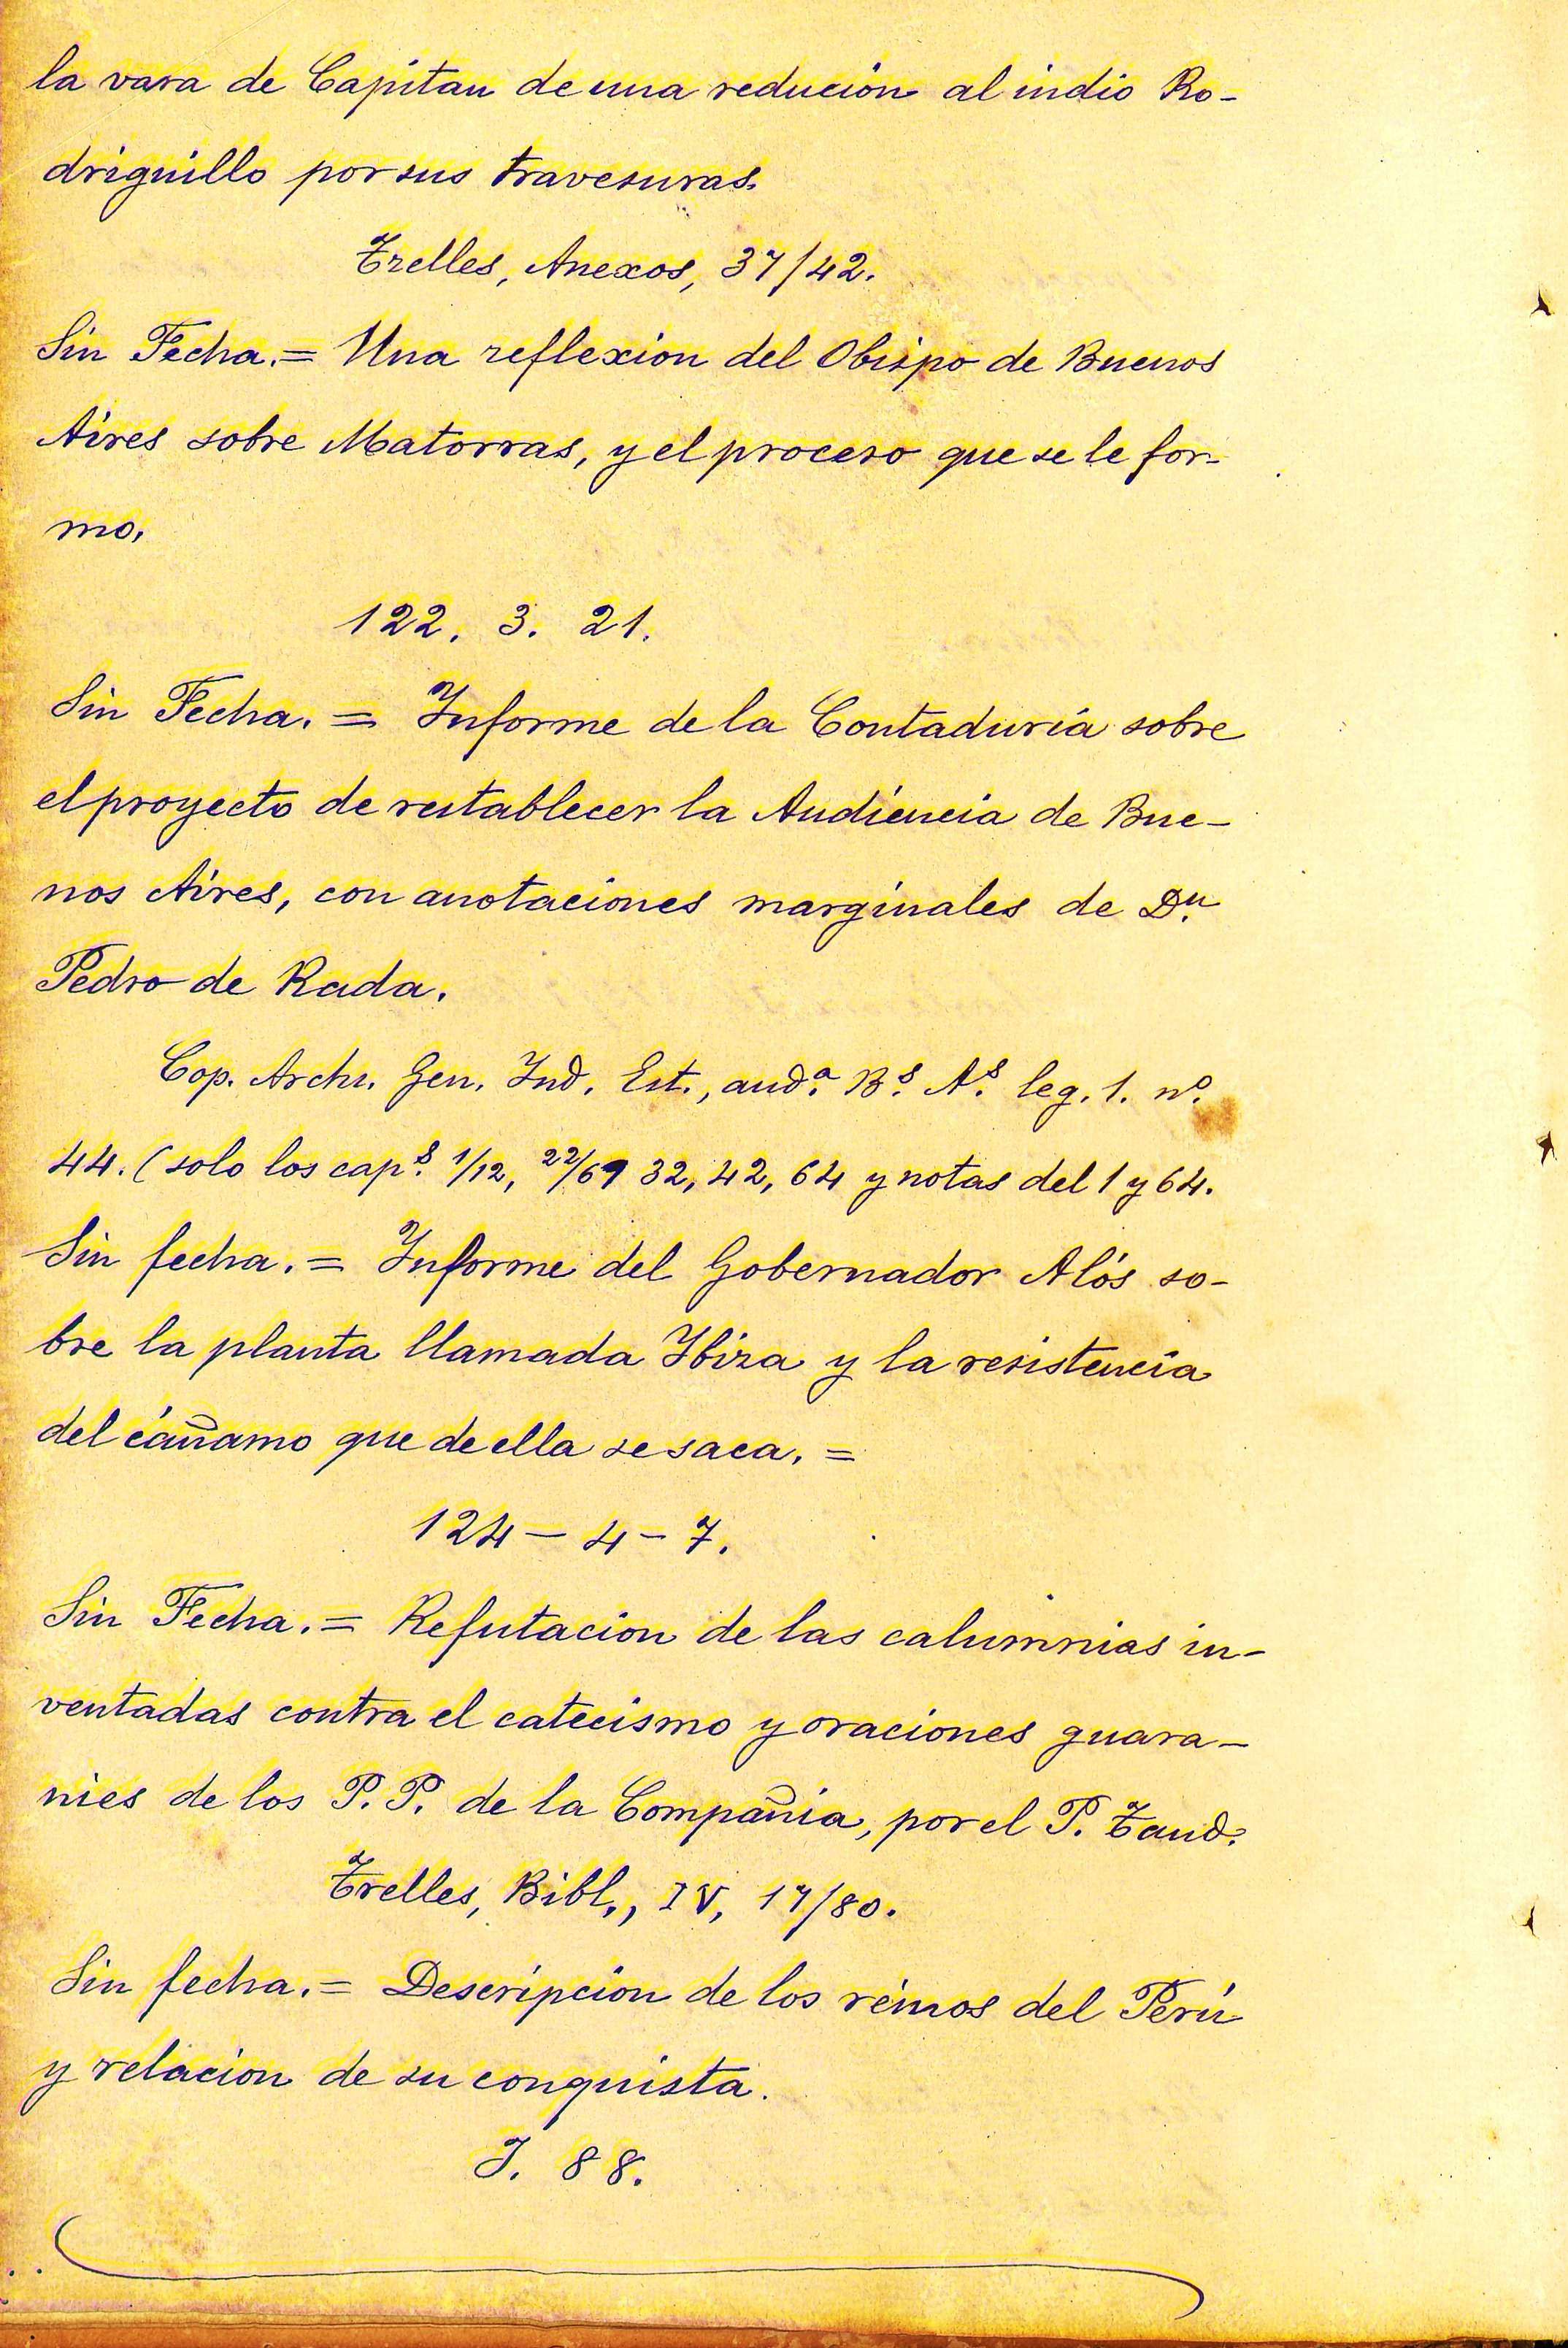 la vara de Capitan de una redución al indio Ro-
driguillo por sus travesuras.
Trelles, Anexos, 37/42.
Sin Fecha.= Una reflexion del Obispo de Buenos
Aires sobre Matorras, y el proceso que se le for-
mo.
122. 3. 21.
Sin Fecha. = Informe de la Contaduría sobre
el proyecto de restablecer la Audiencia de Bue-
nos Aires, con anotaciones marginales de Dn.
Pedro de Rada.
Cop. Arch. Gen. Ind. Est., auda. Bs. As. leg. 1. no.
44. (solo los caps. 1/12, 22/69 32, 42, 64 y notas del 1 y 64.
Sin fecha. = Informe del Gobernador Alós so-
bre la planta llamada Ibiza y la resistencia
del cáñamo que de ella se saca. =
124 - 4 - 7.
Sin Fecha. = Refutacion de las calumnias in-
ventadas contra el catecismo y oraciones guara-
nies de los P.P. de la Compañia, por el P.
Trelles, Bibl., IV, 17/80.
Sin fecha. = Descripcion de los reinos del Perú
y relacion de su conquista.
J. 88.